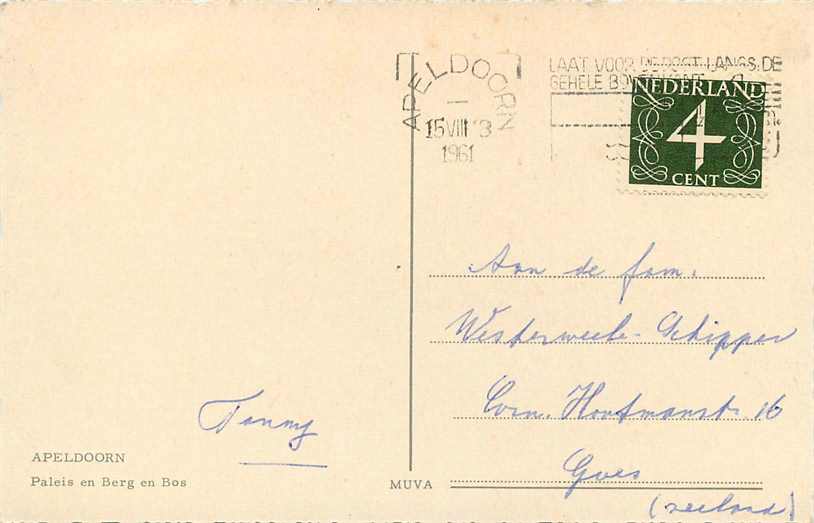 APELDOORN
15 VIII 1961
LAAT VOOR DE POST LANGS DE
GEHELE BOVENKANT
NEDERLAND
4
CENT
Aan de fam.
Westerweele-Schipper
Corn. Houtmanstr. 16
Goes
(zeeland)
Tanny
APELDOORN
Paleis en Berg en Bos
MUVA